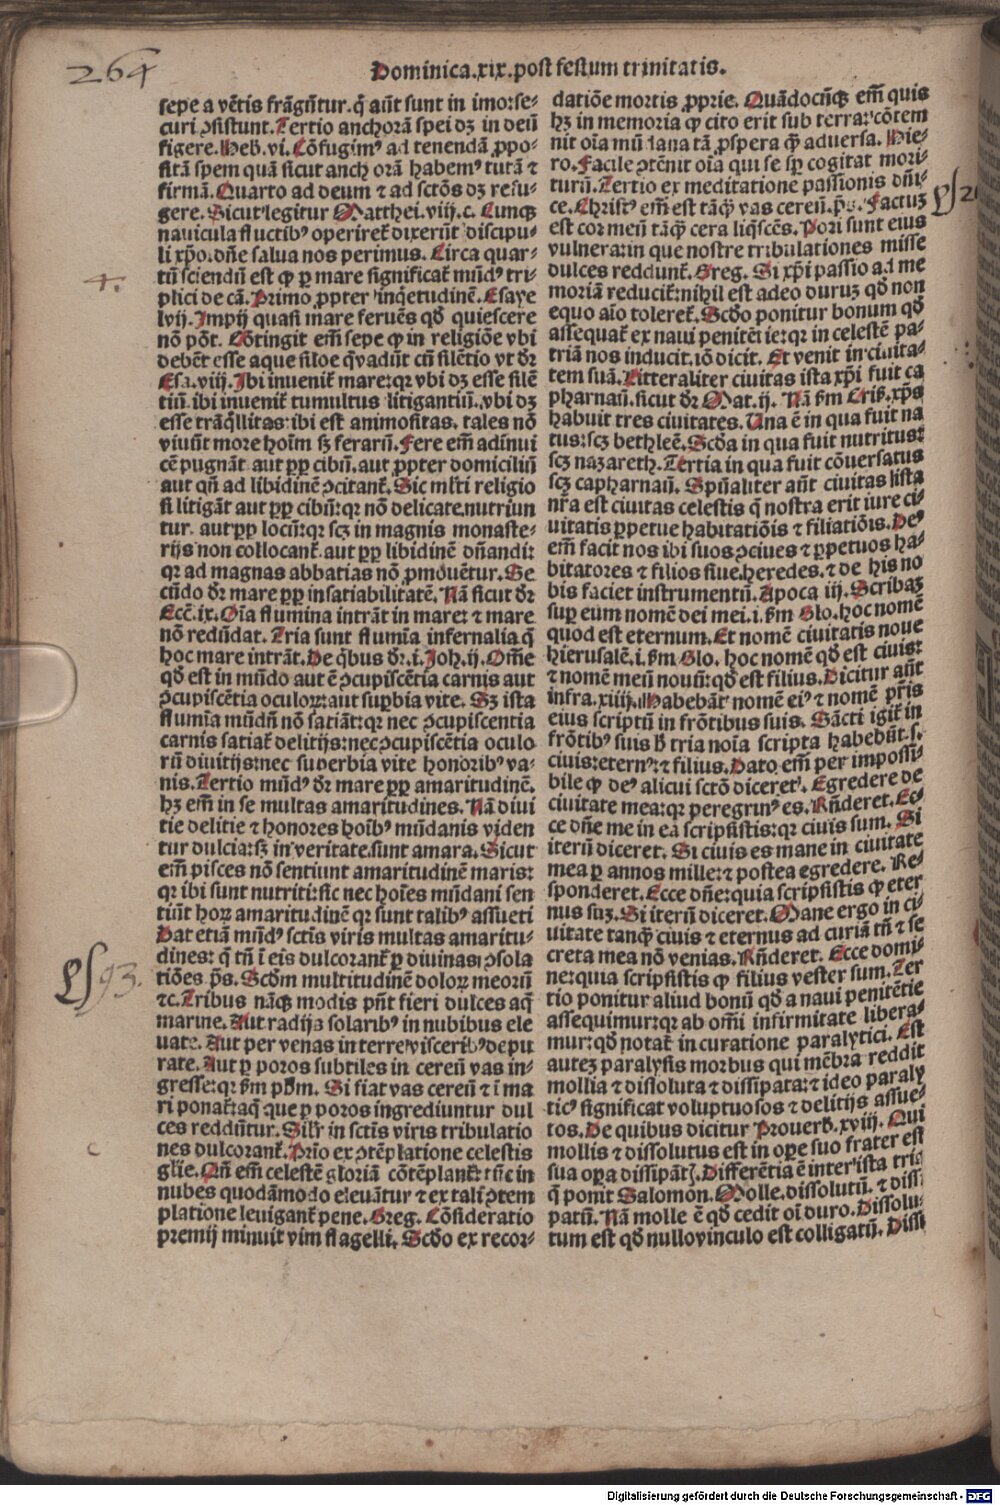 264
Dominica.xix.post festum trinitatis.
sepe a vētis frāgūtur.q̄ aūt sunt in imo:se-
curi ꝯsistunt.Tertio anchorā spei dꝫ in deū
figere.Heb̄.vi.Cōfugimꝰ ad tenendā ꝓpo-
sitā spem quā sicut anchorā habemꝰ tutā ⁊
firmā.Quarto ad deum ⁊ ad sctōs dꝫ refu-
gere.Sicut legitur Matthei.viij.c.Cumqꝫ
nauicula fluctibꝰ operiret̄ dixerūt discipu-
li xp̄o.dn̄e salua nos perimus.Circa quar-
tū sciendū est ꝙ ꝑ mare significat̄ mūdꝰ tri-
plici de cā.Primo ꝓpter inq̄etudinē.Esaye
lvij.Impij quasi mare feruēs qd̄ quiescere
nō pōt.Cōtingit em̄ sepe ꝙ in religiōe vbi
debēt esse aque siloe q̄ vadūt cū silētio vt dr̄
Esa.viij.Ibi inuenit̄ mare:qr vbi dꝫ esse silē
tiū.ibi inuenit̄ tumultus litigantiū.vbi dꝫ
esse trāq̄llitas:ibi est animositas.tales nō
viuūt more hoīm sꝫ ferarū.Fere em̄ adinui
cē pugnāt aut ꝓp cibū.aut ꝓpter domiciliū
aut qn̄ ad libidinē ꝯcitant̄.Sic ml̄ti religio
si litigāt aut ꝓp cibū:qr nō delicate nutriun
tur.aut ꝓp locū:qr scꝫ in magnis monaste-
rijs non collocant̄.aut ꝓp libidinē dn̄andi:
qr ad magnas abbatias nō ꝓmouētur.Se
cūdo dr̄ mare ꝓp insatiabilitatē.Nā sicut dr̄
Ecc̄.ix.Oīa flumina intrāt in mare: ⁊ mare
nō redūdat.Tria sunt flumīa infernalia q̄
hoc mare intrāt.De q̄bus dr̄.i.Joh.ij.Om̄e
qd̄ est in mūdo aut ē ꝯcupiscētia carnis aut
ꝯcupiscētia oculoꝝ:aut suꝑbia vite.Sꝫ ista
flumīa mūdū nō satiāt:qr nec ꝯcupiscentia
carnis satiat̄ delitijs:nec ꝯcupiscētia oculo
rū diuitijs:nec superbia vite honoribꝰ va-
nis.Tertio mūdꝰ dr̄ mare ꝓp amaritudinē.
hꝫ em̄ in se multas amaritudines.Nā diui
tie delitie ⁊ honores hoībꝰ mūdanis viden
tur dulcia:sꝫ in veritate.sunt amara.Sicut
em̄ pisces nō sentiunt amaritudinē maris:
qr ibi sunt nutriti:sic nec hoīes mūdani sen
tiūt hoꝝ amaritudinē qr sunt talibꝰ assueti
Dat etiā mūdꝰ sctīs viris multas amaritu-
dines: q̄ tn̄ ī eis dulcorant̄ ꝑ diuinas ꝯsola
tiōes.p̄s.Scdm multitudinē doloꝝ meorū
⁊c.Tribus nāqꝫ modis pn̄t fieri dulces aq̄
marine.Aut radijs solaribꝰ in nubibus ele
uate.Aut per venas in terre visceribꝰ depu
rate.Aut ꝑ poros subtiles in cereū vas in-
gresse:qr ẜm pbm̄.Si fiat vas cereū ⁊ ī ma
ri ponat̄:aq̄ que ꝑ poros ingrediuntur dul
ces reddūtur.Sil̄r in sctīs viris tribulatio
nes dulcorant̄.Prīo ex ꝯtēplatione celestis
gl̄ie.Qn̄ em̄ celestē gloriā cōtēplant̄ tūc in
nubes quodāmodo eleuātur ⁊ ex tali ꝯtem
platione leuigant̄ pene.Greg.Cōsideratio
premij minuit vim flagelli.Scdo ex recor-
datiōe mortis ꝓprie.Quādocūqꝫ em̄ quis
hꝫ in memoria ꝙ cito erit sub terra:cōtem
nit oīa mūdana tā ꝓspera q̄ꝫ aduersa.Hie-
ro.Facile ꝯtēnit oīa qui se sꝑ cogitat mori-
turū.Tertio ex meditatione passionis dn̄i-
ce.Christꝰ em̄ est tāq̄ꝫ vas cereū.p̄s.Factuꝫ
est cor meū tāq̄ꝫ cera liq̄scēs.Pori sunt eius
vulnera:in que nostre tribulationes misse
dulces reddunt̄.Greg.Si xp̄i passio ad me
moriā reducit̄:nihil est adeo duruꝫ qd̄ non
equo aīo toleret̄.Scdo ponitur bonum qd̄
assequat̄ ex naui penitētie:qr in celestē pa-
triā nos inducit.iō dicit.Et venit in ciuita-
tem suā.Litteraliter ciuitas ista xp̄i fuit ca
pharnaū.sicut dr̄ Mat.ij.Nā ẜm Cris̄.xp̄s
habuit tres ciuitates.Una ē in qua fuit na
tus:scꝫ bethleē.Scda in qua fuit nutritus:
scꝫ nazareth.Tertia in qua fuit cōuersatus
scꝫ capharnaū.Spūaliter aūt ciuitas ista
nr̄a est ciuitas celestis q̄ nostra erit iure ci-
uitatis ꝑpetue habitatiōis ⁊ filiatiōis.Deꝰ
em̄ facit nos ibi suos ꝯciues ⁊ ꝑpetuos ha-
bitatores ⁊ filios siue heredes.⁊ de his no
bis faciet instrumentū.Apoca iij.Scribaꝫ
suꝑ eum nomē dei mei.i.ẜm Glo.hoc nomē
quod est eternum.Et nomē ciuitatis noue
hierusalē.i.ẜm Glo.hoc nomē qd̄ est ciuis:
⁊ nomē meū nouū:qd̄ est filius.Dicitur aūt
infra.xiiij.Habebāt nomē eiꝰ ⁊ nomē pr̄is
eius scriptū in frōtibus suis.Sācti igit̄ in
frōtibꝰ suis b̄ tria noīa scripta habebūt.s.
ciuis:eternꝰ:⁊ filius.Dato em̄ per impossi-
bile ꝙ deꝰ alicui sctō diceret.Egredere de
ciuitate mea:qr peregrinꝰ es.Rn̄deret.Ec-
ce dn̄e me in ea scripsistis:qr ciuis sum.Si
iterū diceret.Si ciuis es mane in ciuitate
mea ꝑ annos mille:⁊ postea egredere.Re-
sponderet.Ecce dn̄e:quia scripsistis ꝙ eter
nus suꝫ.Si iterū diceret.Mane ergo in ci-
uitate tanqꝫ ciuis ⁊ eternus ad curiā tn̄ ⁊ se
creta mea nō venias.Rn̄deret.Ecce domi-
ne:quia scripsistis ꝙ filius vester sum.Ter
tio ponitur aliud bonū qd̄ a naui penitētie
assequimur:qr ab om̄i infirmitate libera-
mur:qd̄ notat̄ in curatione paralytici.Est
auteꝫ paralysis morbus qui mēbra reddit
mollia ⁊ dissoluta ⁊ dissipata:⁊ ideo paraly
ticꝰ significat voluptuosos ⁊ delitijs assue-
tos.De quibus dicitur Prouerb̄.xviij.Qui
mollis ⁊ dissolutus est in oꝑe suo frater est
sua oꝑa dissipātꝭ.Differētia ē inter ista tria
q̄ ponit Salomon.Molle.dissolutū.⁊ dissi
patū.Nā molle ē qd̄ cedit oī duro.Dissolu-
tum est qd̄ nullo vinculo est colligatū.Dissi
4.
ps 93.
ps 2
Digitalisierung gefördert durch die Deutsche Forschungsgemeinschaft - DFG